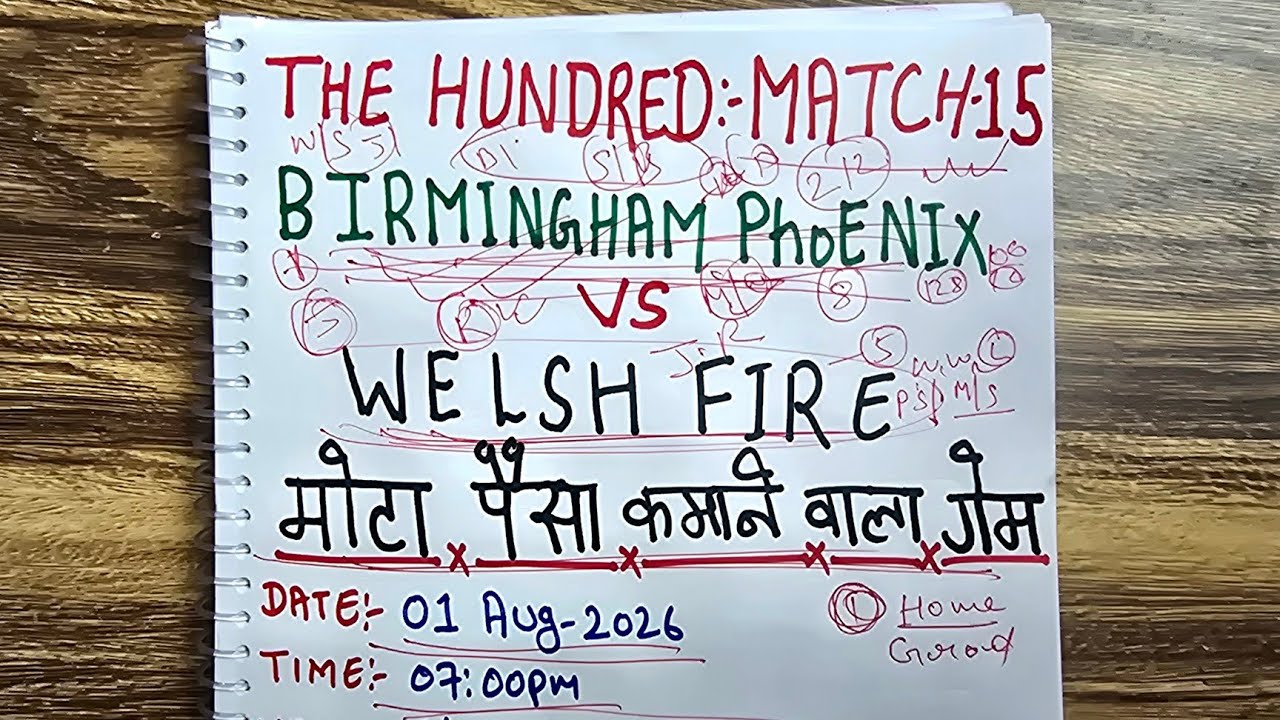 THE HUNDRED:-MATCH-15
W/S 5 D1 S/B 212
BIRMINGHAM PhOENIX
8 128
VS
B R
J.R 5 W.W L
WELSH FIRE P's/ M/S
मोटा पैसा कमाने वाला गेम
DATE:- 01 Aug-2026 L Home
TIME:- 07:00pm